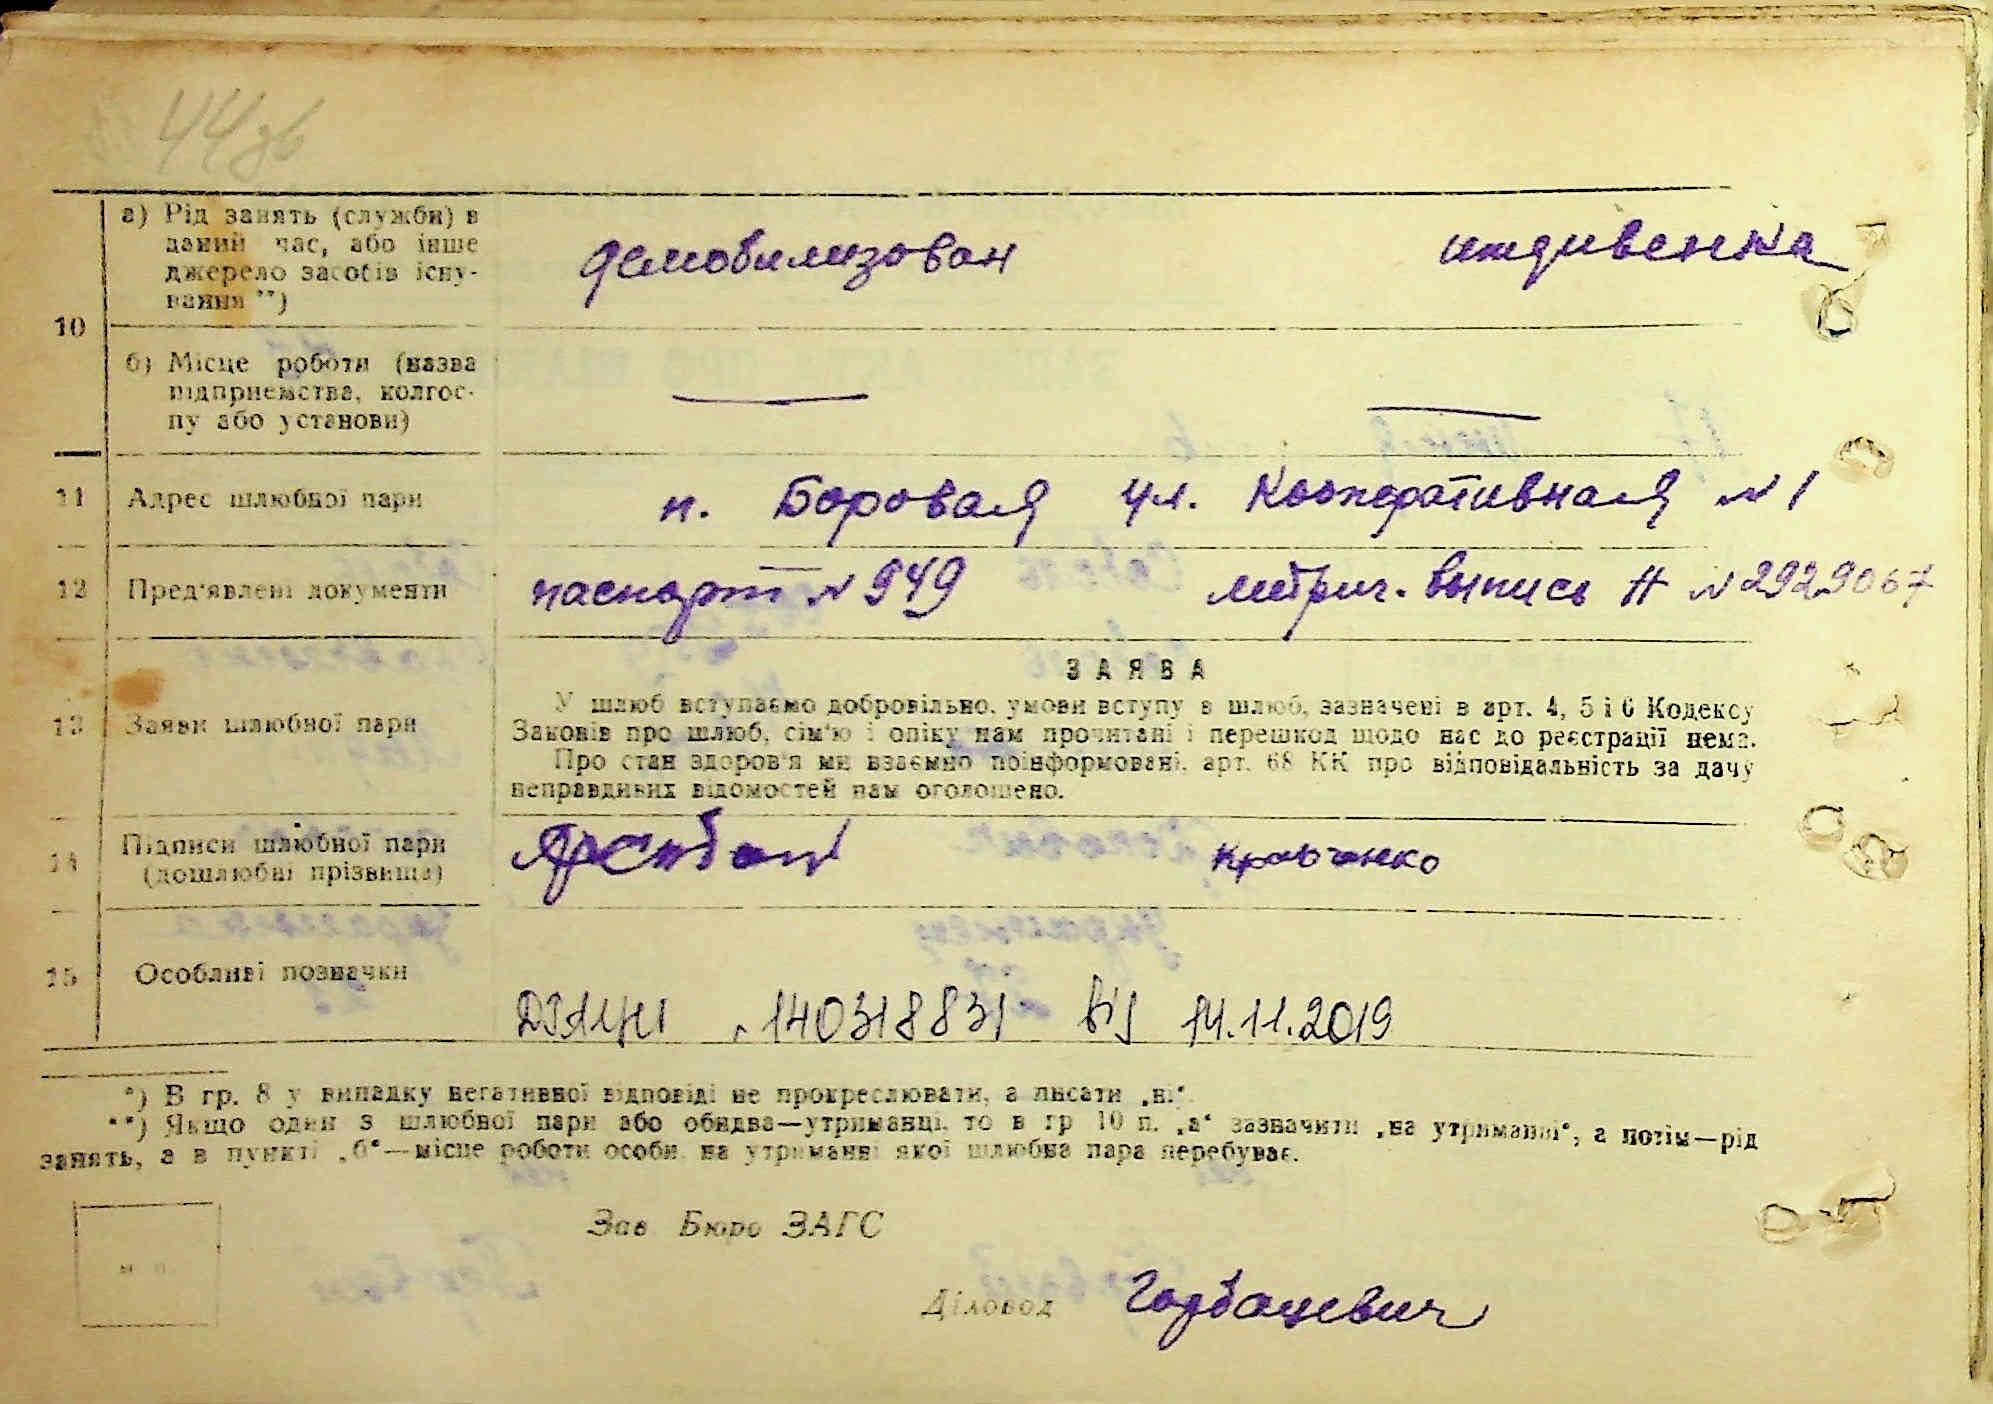 44 зв
а) Рід занять (служби) в
даний час, або інше
джерело засобів існу-
вання **)
демобилизован
иждивенка
10
б) Місце роботи (назва
підприємства, колгос-
пу або установи)
11 Адрес шлюбної пари
п. Боровая ул. Кооперативная № 1
12 Пред'явлені документи
паспорт № 949
метрич. выпись № 2929067
ЗАЯВА
13 Заяви шлюбної пари
У шлюб вступаємо добровільно, умови вступу в шлюб, зазначені в арт. 4, 5 і 6 Кодексу
Законів про шлюб, сім'ю і опіку нам прочитані і перешкод щодо нас до реєстрації нема.
Про стан здоров'я ми взаємно поінформовані, арт. 68 КК про відповідальність за дачу
неправдивих відомостей нам оголошено.
14 Підписи шлюбної пари
(дошлюбні прізвища)
Кравченко
15 Особливі позначки
140318831 від 14.11.2019
*) В гр. 8 у випадку негативної відповіді не прокреслювати, а писати „ні“.
**) Якщо один з шлюбної пари або обидва—утриманці, то в гр 10 п. „а“ зазначити „на утриманні“, а потім—рід
занять, а в пункті „б“—місце роботи особи, на утриманні якої шлюбна пара перебуває.
Зав Бюро ЗАГС
м п.
Діловод Горбацевич